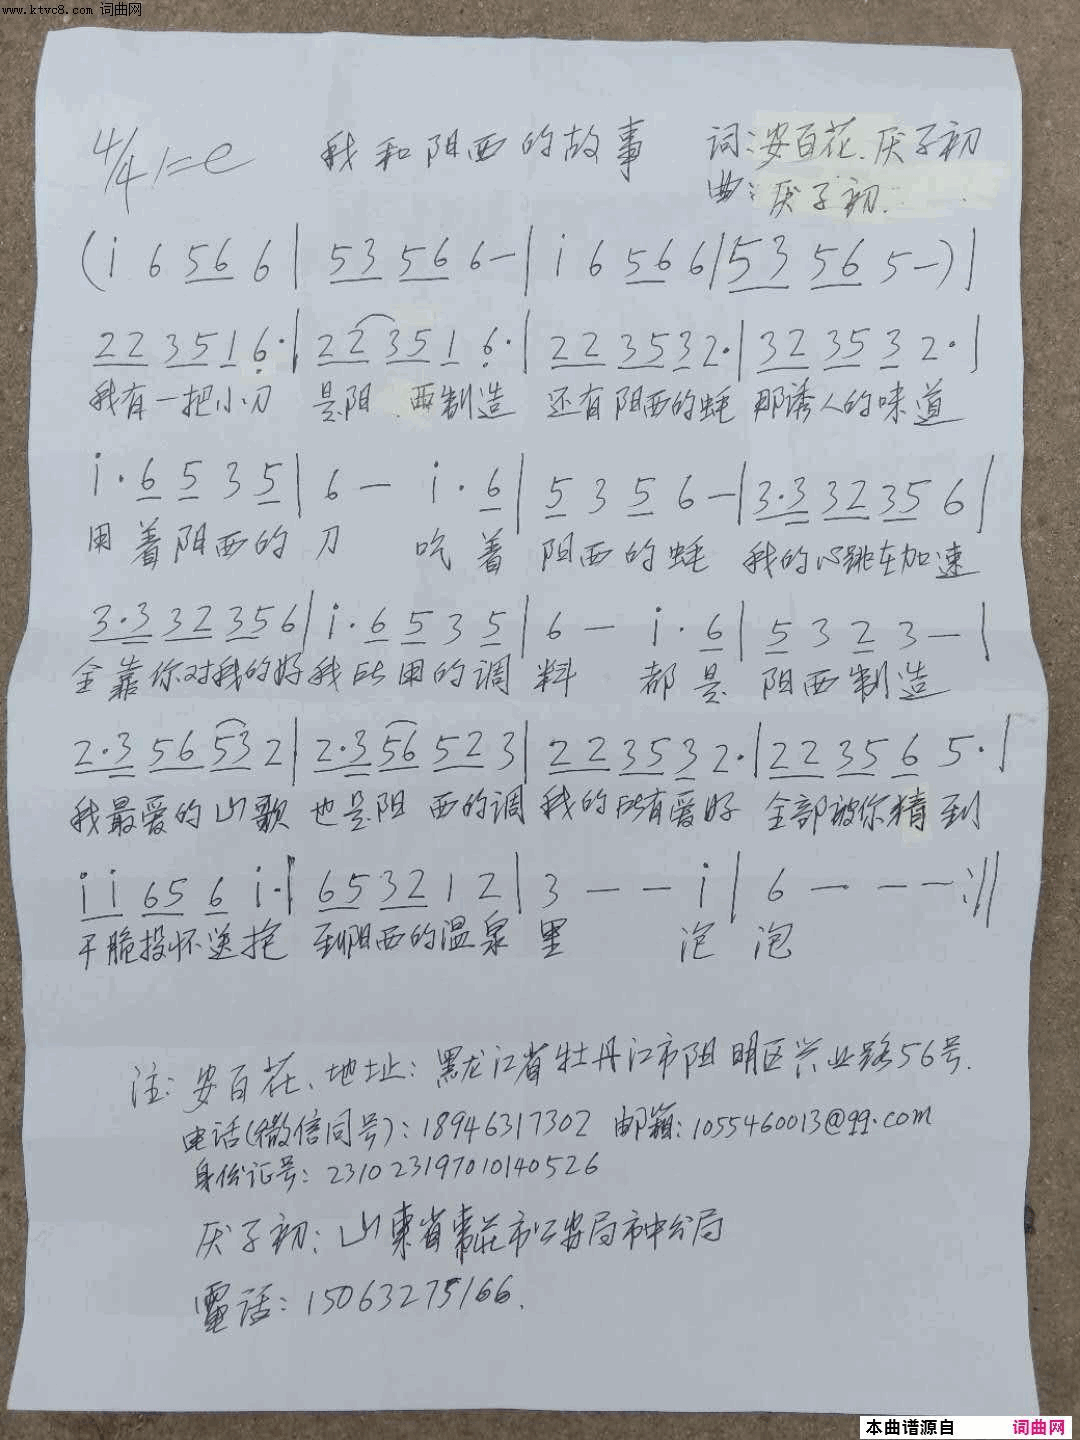 www.ktvc8.com 词曲网
4/4 1=e 我和阳西的故事 词:安百花、厌子初
曲:厌子初.
(i 6 5 6 6 | 5 3 5 6 6 - | i 6 5 6 6 | 5 3 5 6 5 -) |
2 2 3 5 1 6· | 2 2 3 5 1 6· | 2 2 3 5 3 2· | 3 2 3 5 3 2· |
我有一把小刀 是阳西制造 还有阳西的蚝 那诱人的味道
i· 6 5 3 5 | 6 - i· 6 | 5 3 5 6 - | 3·3 3 2 3 5 6 |
用着阳西的刀 吃着 阳西的蚝 我的心跳在加速
3·3 3 2 3 5 6 | i· 6 5 3 5 | 6 - i· 6 | 5 3 2 3 - |
全靠你对我的好 我所用的调料 都是 阳西制造
2·3 5 6 5 3 2 | 2·3 5 6 5 2 3 | 2 2 3 5 3 2· | 2 2 3 5 6 5· |
我最爱的山歌 也是阳西的调 我的所有爱好 全部被你猜到
i i 6 5 6 i· | 6 5 3 2 1 2 | 3 - - i | 6 - - - :||
干脆投怀送抱 到阳西的温泉里 泡泡
注: 安百花、地址: 黑龙江省牡丹江市阳明区兴业路56号.
电话(微信同号): 18946317302 邮箱: 1055460013@qq.com
身份证号: 231023197010140526
厌子初: 山东省枣庄市公安局市中分局
電话: 15063275166.
本曲谱源自 词曲网